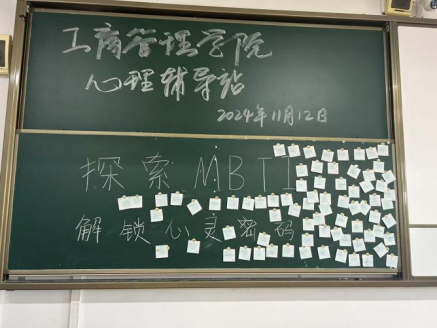 工商管理学院
心理辅导站
2024年11月12日
探索MBTI
解锁心灵密码